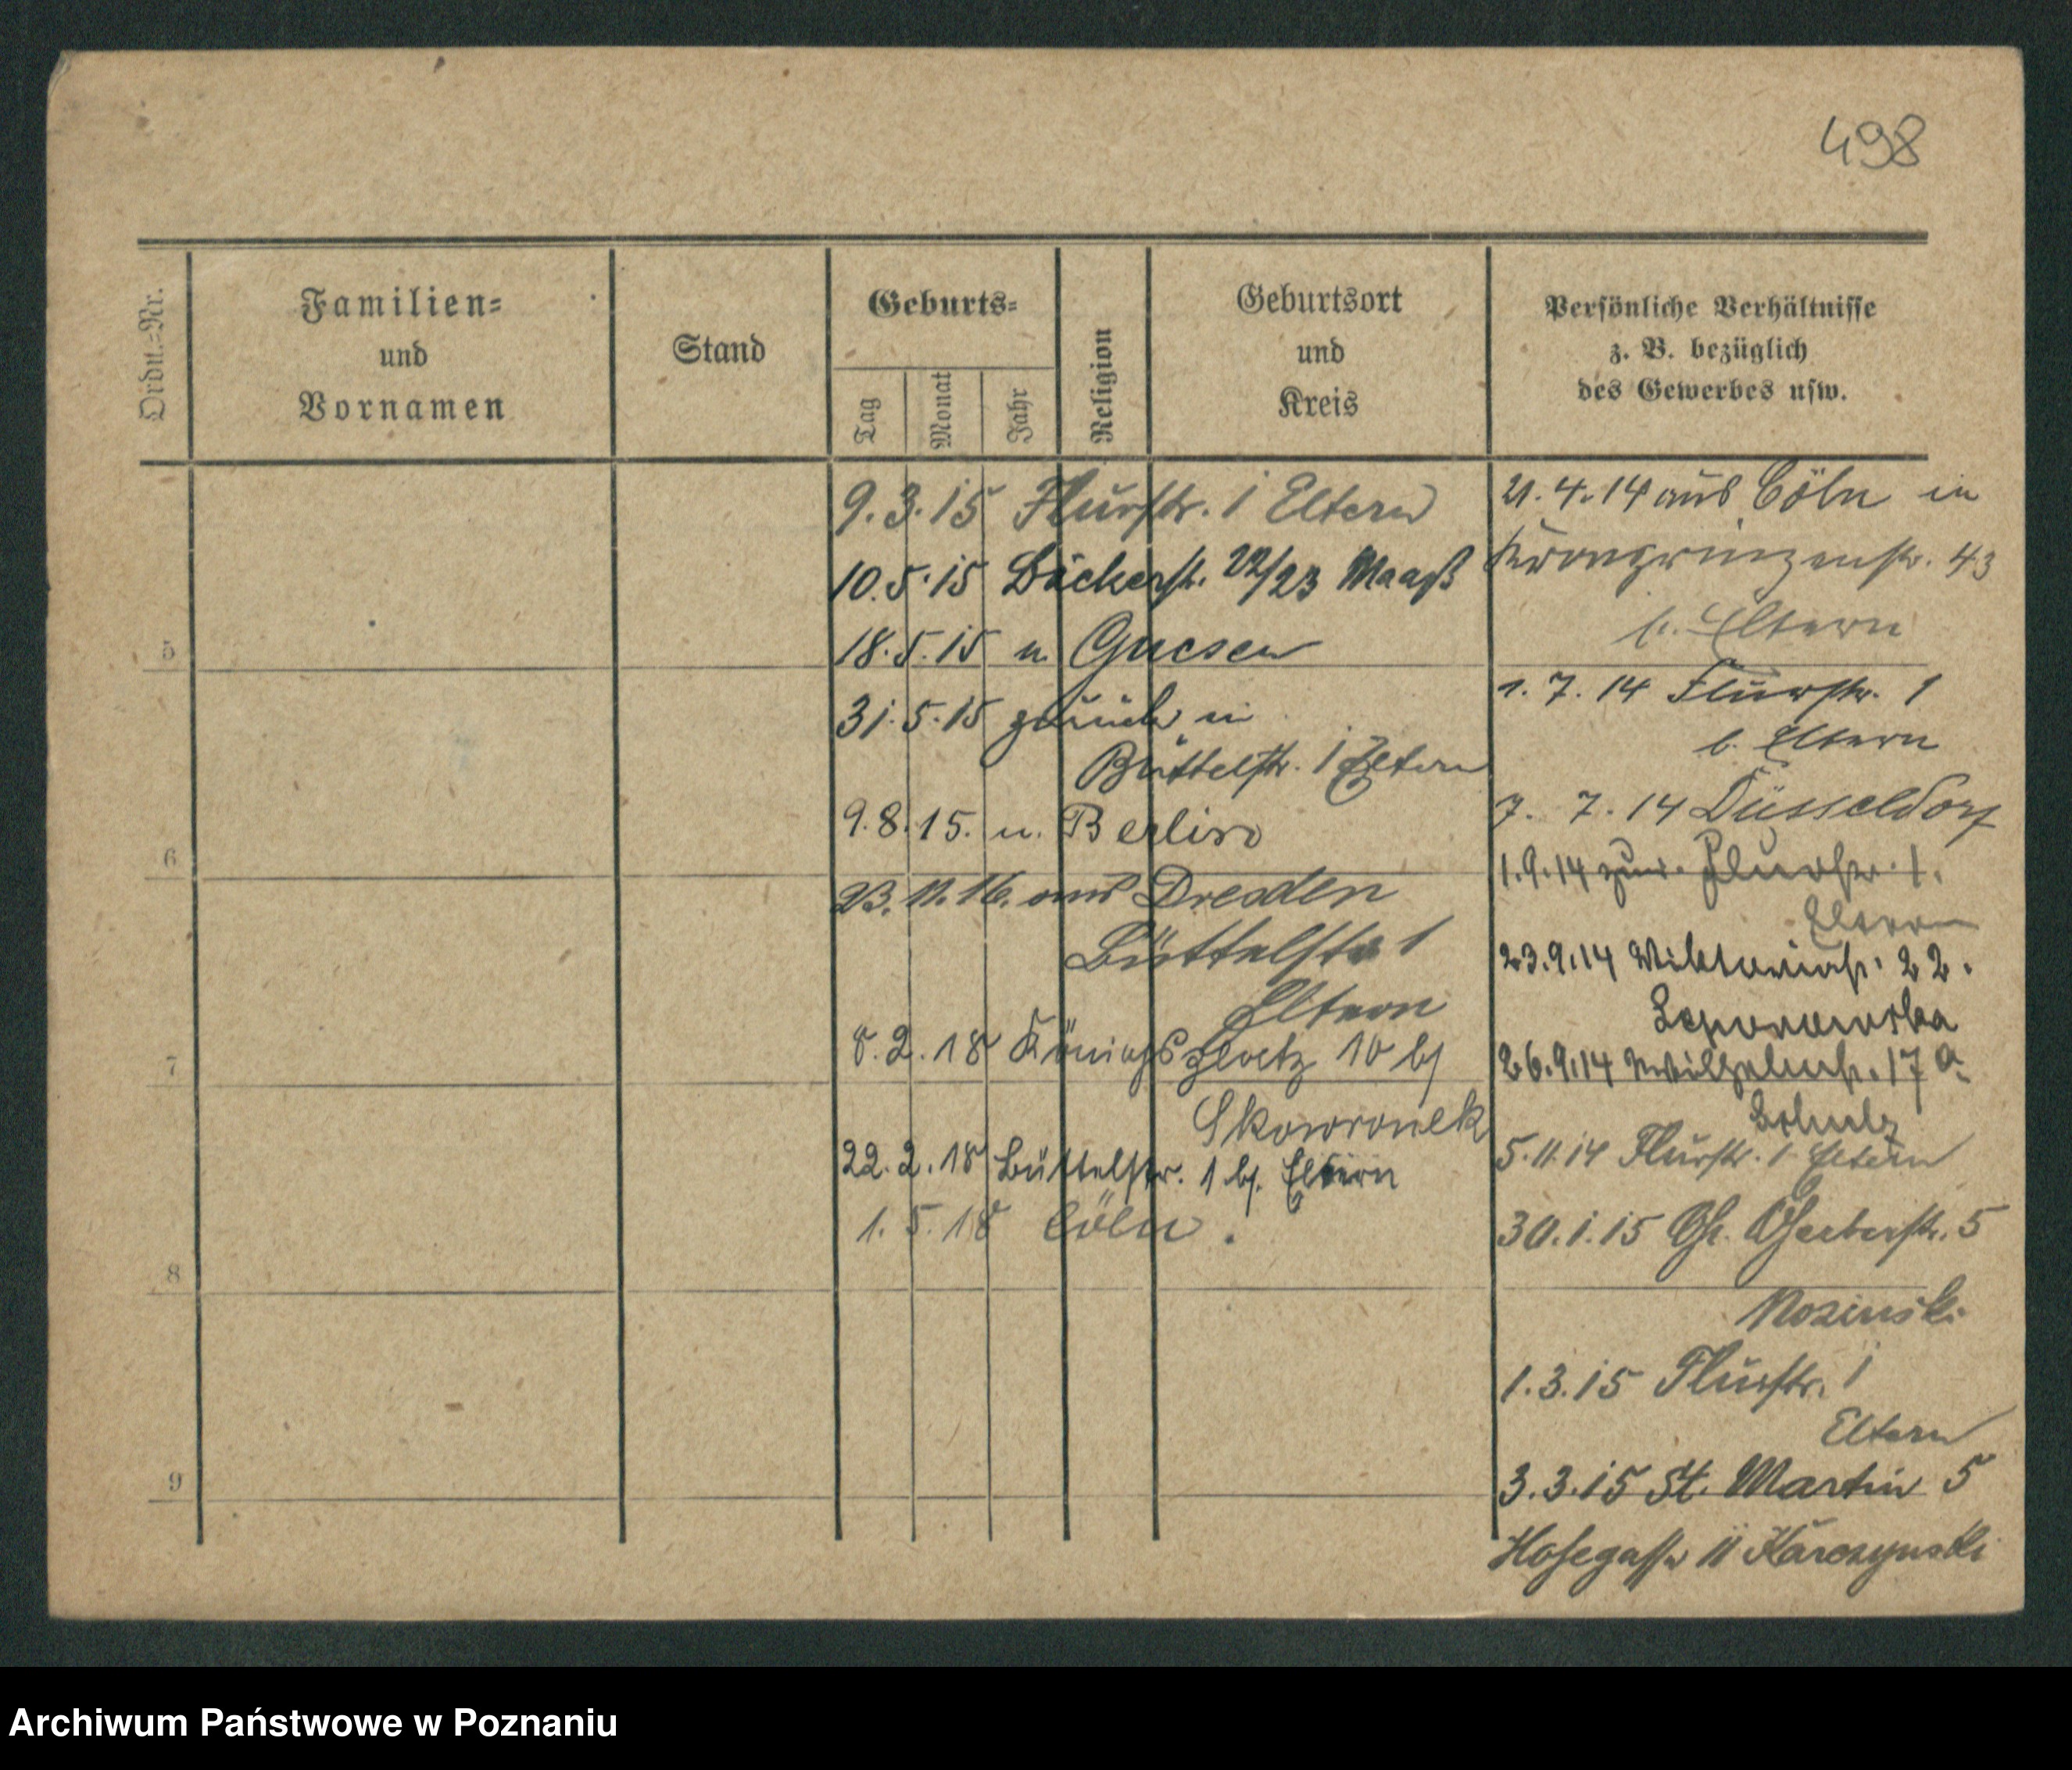 498
Ordn.-Nr.
Familien-
und
Vornamen
Stand
Geburts-
Tag
Monat
Jahr
Religion
Geburtsort
und
Kreis
Persönliche Verhältnisse
z. B. bezüglich
des Gewerbes usw.
5
6
7
8
9
9.3.15 Flurstr. 1 Eltern
10.5.15 Bäckerstr. 22/23 Maaß
18.5.15 n. Gnesen
31.5.15 zurück in
Büttelstr. 1 Eltern
9.8.15. n. Berlin
23.11.16. aus Dresden
Büttelstr 1
Eltern
8.2.18 Königsplatz 10 bj
Skowronek
22.2.18 Büttelstr. 1 bj. Eltern
1.5.18 Cöln.
21.4.14 aus Cöln in
Kronprinzenstr. 43
b. Eltern
1.7.14 Flurstr. 1
b. Eltern
7. 7.14 Düsseldorf
1.9.14 zur. Flurstr. 1.
Eltern
23.9.14 Viktoriastr. 22.
26.9.14 Wilhelmstr. 17a
Schulz
5.11.14 Flurstr. 1 Eltern
30.1.15 Gr. Gerberstr. 5
Rozinski
1.3.15 Flurstr. 1
Eltern
3.3.15 St. Martin 5
11 Karczynski
Archiwum Państwowe w Poznaniu